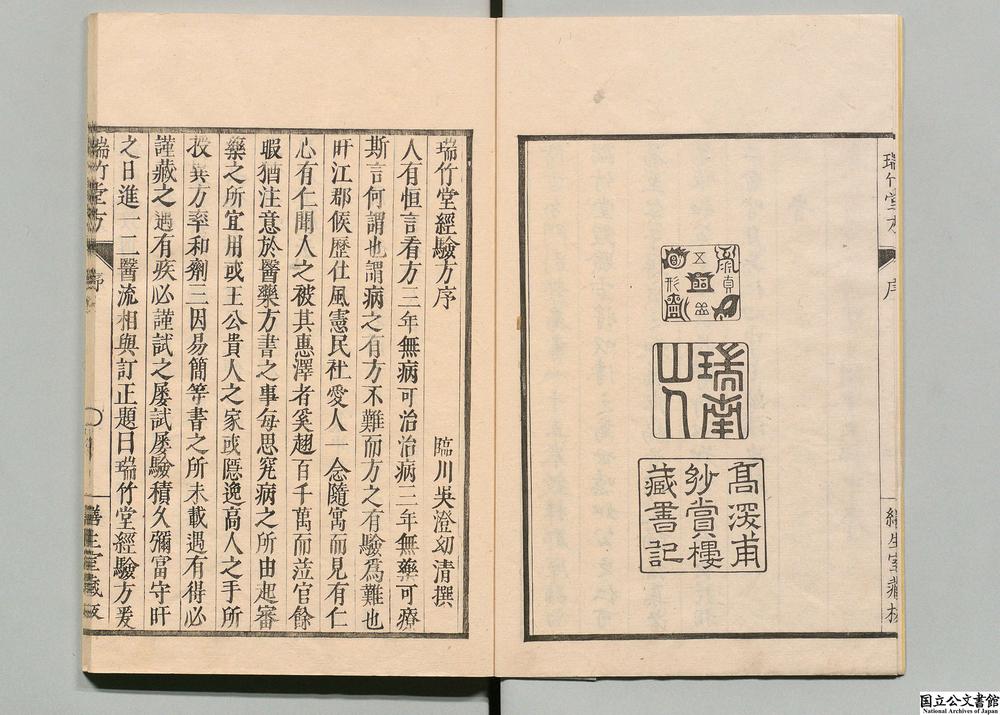 瑞竹堂方
序
繼生室藏板
五
形
瑞南
山人
高深甫
妙賞樓
藏書記
瑞竹堂經驗方序
臨川吳澄幼清撰
人有恒言看方三年無病可治治病三年無藥可療
斯言何謂也謂病之有方不難而方之有驗爲難也
旴江郡候歷仕風憲民社愛人一念隨寓而見有仁
心有仁聞人之被其惠澤者奚趐百千萬而蒞官餘
暇猶注意於醫藥方書之事每思究病之所由起審
藥之所宜用或王公貴人之家或隱逸高人之手所
授異方率和劑三因易簡等書之所未載遇有得必
謹藏之遇有疾必謹試之屢試屢驗積久彌富守旴
之日進一二醫流相與訂正題曰瑞竹堂經驗方爰
瑞竹堂方
序
生室藏板
国立公文書館
National Archives of Japan